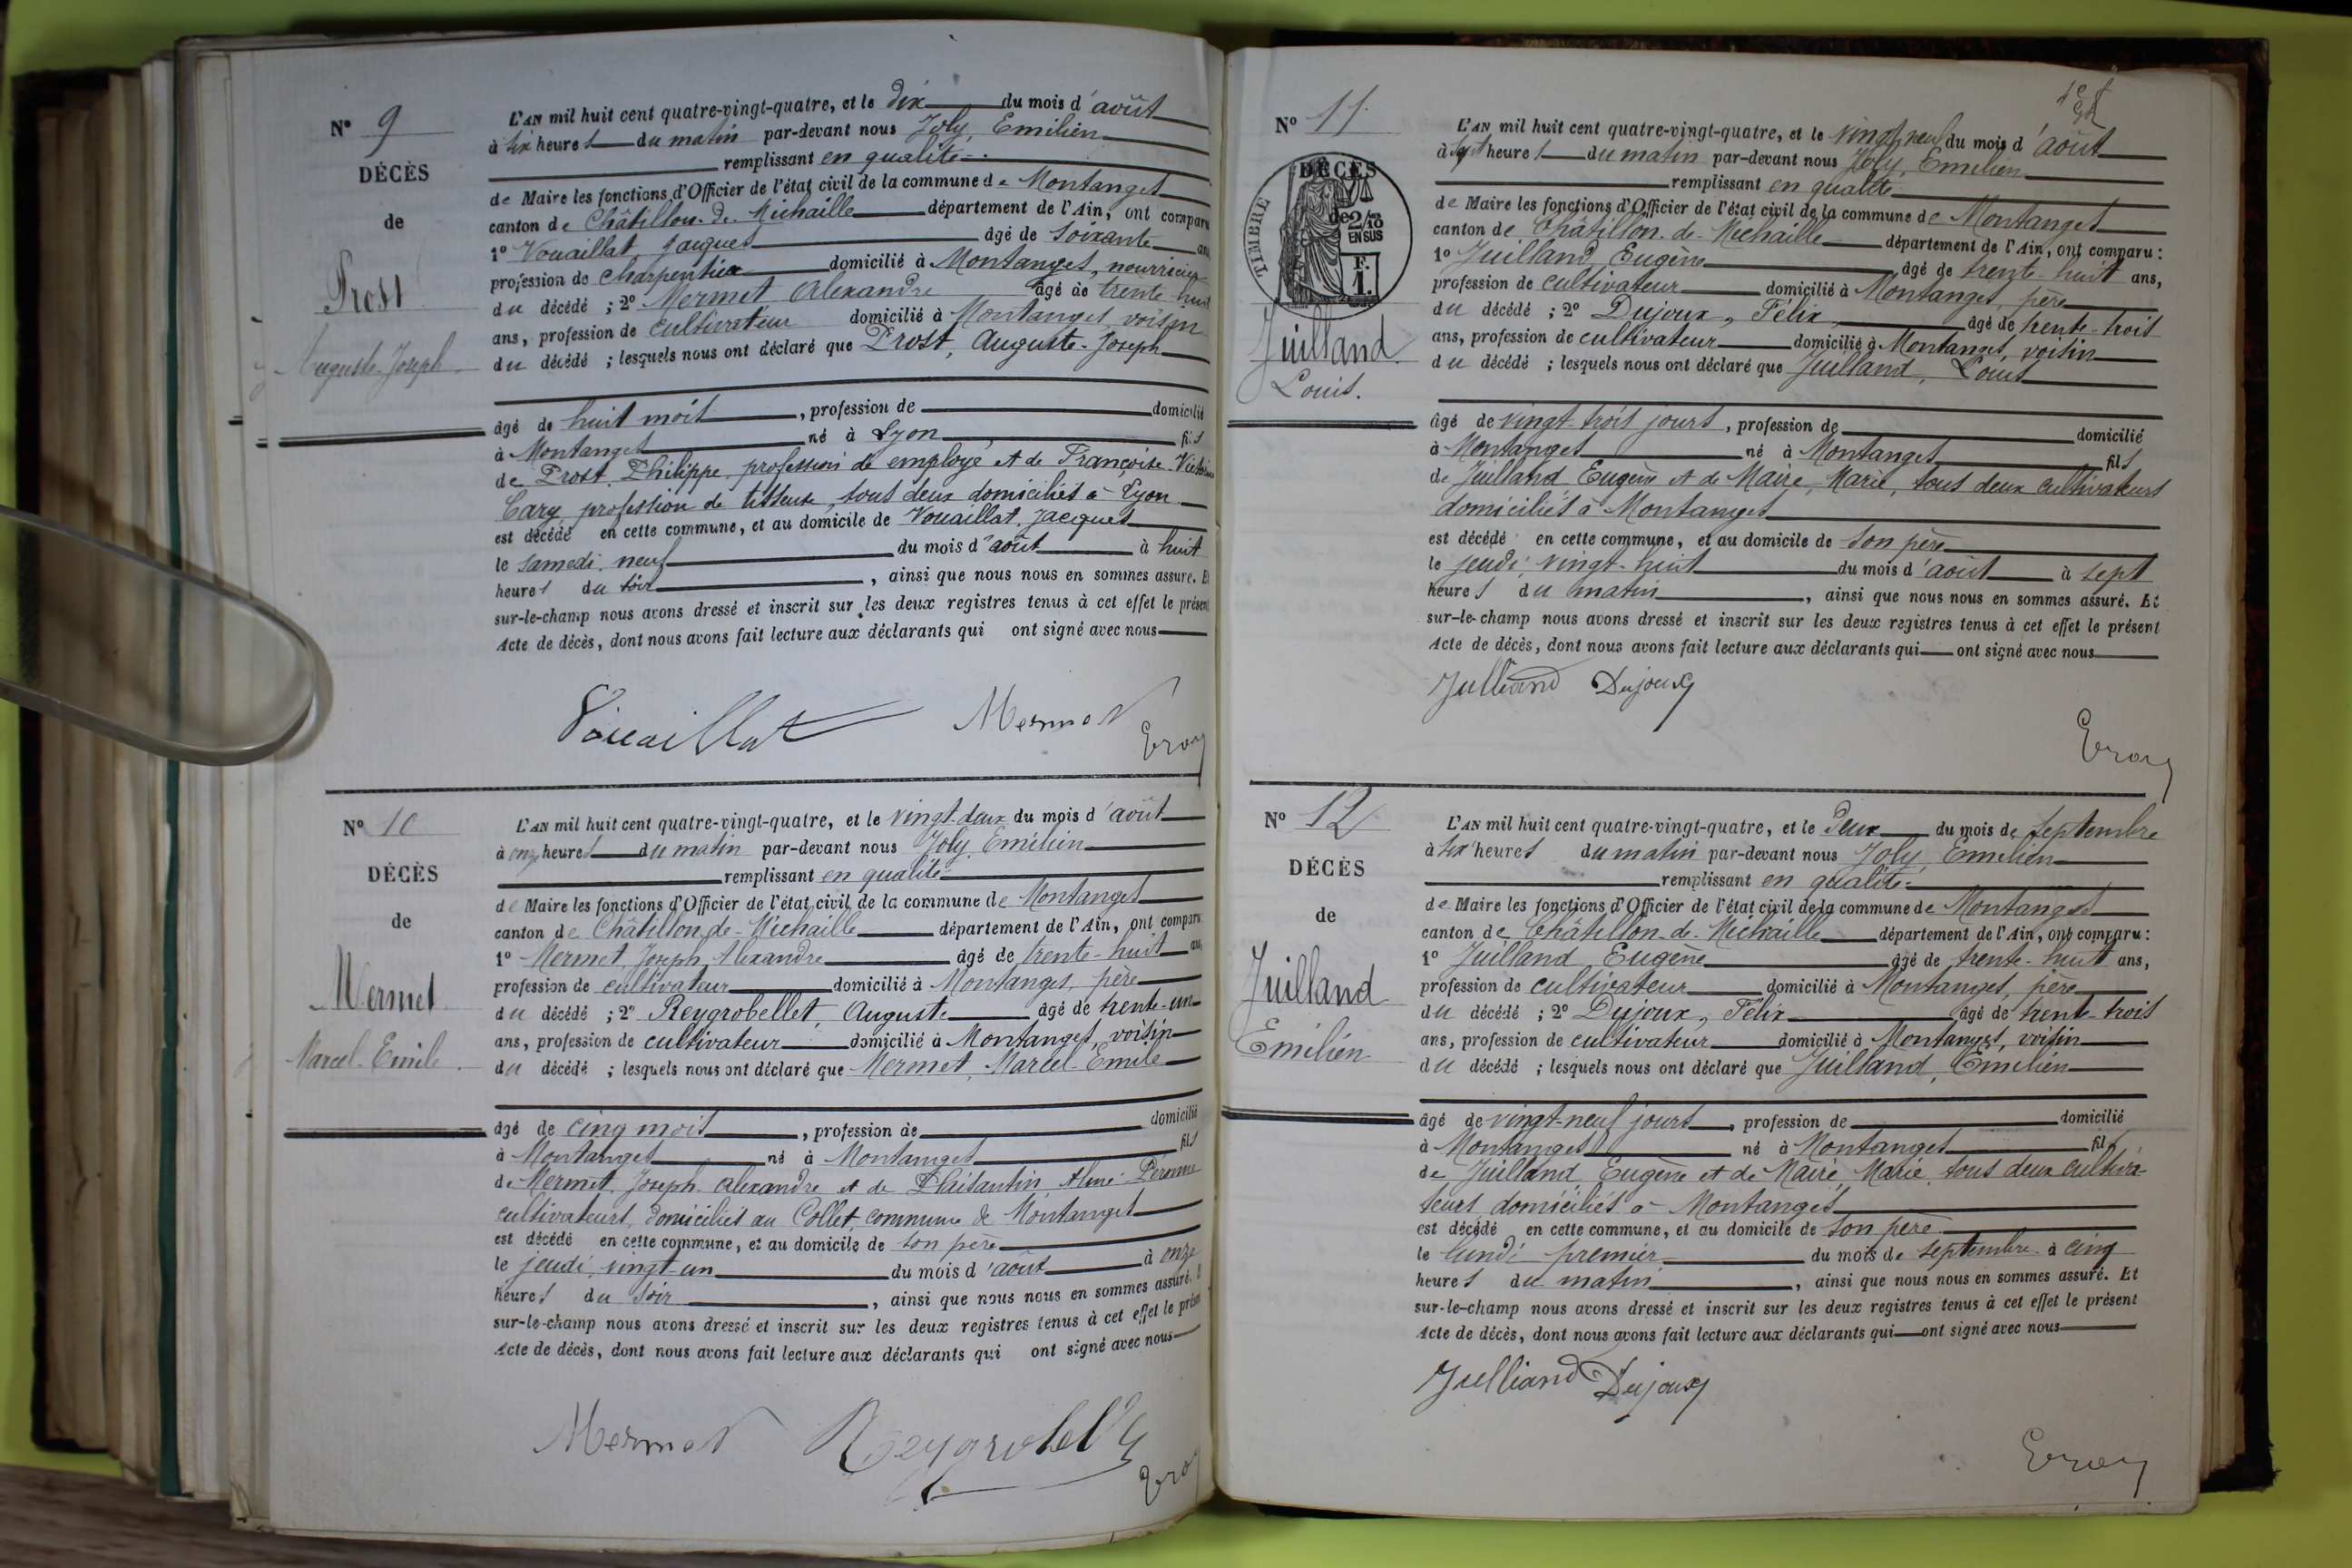 N° 9
DÉCÈS
de
Prost
Auguste-Joseph
L'AN mil huit cent quatre-vingt-quatre, et le dix du mois d'août
à six heures du matin par-devant nous Joly, Emilien
remplissant en qualité
de Maire les fonctions d'Officier de l'état civil de la commune de Montanges
canton de Châtillon-de-Michaille département de l'Ain, ont comparu
1° Vouaillat Jacques âgé de soixante ans
profession de charpentier domicilié à Montanges, nourricier
du décédé ; 2° Mermet Alexandre âgé de trente-huit
ans, profession de cultivateur domicilié à Montanges, voisin
du décédé ; lesquels nous ont déclaré que Prost, Auguste-Joseph
âgé de huit mois, profession de domicilié
à Montanges né à Lyon fils
de Prost, Philippe, profession de employé et de Françoise
Cary profession de tisseuse, tous deux domiciliés à Lyon
est décédé en cette commune, et au domicile de Vouaillat, Jacques
le samedi, neuf du mois d'août à huit
heures du soir, ainsi que nous nous en sommes assuré. Et
sur-le-champ nous avons dressé et inscrit sur les deux registres tenus à cet effet le présent
Acte de décès, dont nous avons fait lecture aux déclarants qui ont signé avec nous
Vouaillat Mermet
N° 10
DÉCÈS
de
Mermet
Marcel-Emile
L'AN mil huit cent quatre-vingt-quatre, et le vingt-deux du mois d'août
à onze heures du matin par-devant nous Joly, Emilien
remplissant en qualité
de Maire les fonctions d'Officier de l'état civil de la commune de Montanges
canton de Châtillon-de-Michaille département de l'Ain, ont comparu
1° Mermet, Joseph, Alexandre âgé de trente-huit ans
profession de cultivateur domicilié à Montanges, père
du décédé ; 2° Reygrobellet, Auguste âgé de trente-un
ans, profession de cultivateur domicilié à Montanges, voisin
du décédé ; lesquels nous ont déclaré que Mermet, Marcel-Emile
âgé de cinq mois, profession de domicilié
à Montanges né à Montanges fils
de Mermet, Joseph, Alexandre et de Plaisantin
cultivateurs, domiciliés au Collet, commune de Montanges
est décédé en cette commune, et au domicile de son père
le jeudi, vingt-un du mois d'août à onze
heures du soir, ainsi que nous nous en sommes assuré.
sur-le-champ nous avons dressé et inscrit sur les deux registres tenus à cet effet le présent
Acte de décès, dont nous avons fait lecture aux déclarants qui ont signé avec nous
Mermet Reygrobellet
N° 11
DÉCÈS
de
TIMBRE
2/10
EN SUS
F.
1.
Juilland
Louis.
L'AN mil huit cent quatre-vingt-quatre, et le vingt-neuf du mois d'août
à sept heures du matin par-devant nous Joly, Emilien
remplissant en qualité
de Maire les fonctions d'Officier de l'état civil de la commune de Montanges
canton de Châtillon-de-Michaille département de l'Ain, ont comparu :
1° Juilland, Eugène âgé de trente-huit ans,
profession de cultivateur domicilié à Montanges, père
du décédé ; 2° Dujoux, Félix, âgé de trente-trois
ans, profession de cultivateur domicilié à Montanges, voisin
du décédé ; lesquels nous ont déclaré que Juilland, Louis
âgé de vingt-trois jours, profession de domicilié
à Montanges né à Montanges fils
de Juilland Eugène et de Maire, Marie, tous deux cultivateurs
domiciliés à Montanges
est décédé en cette commune, et au domicile de son père
le jeudi, vingt-huit du mois d'août à sept
heures du matin, ainsi que nous nous en sommes assuré. Et
sur-le-champ nous avons dressé et inscrit sur les deux registres tenus à cet effet le présent
Acte de décès, dont nous avons fait lecture aux déclarants qui ont signé avec nous
Julliand Dujoux
N° 12
DÉCÈS
de
Juilland
Emilien
L'AN mil huit cent quatre-vingt-quatre, et le Deux du mois de septembre
à six heures du matin par-devant nous Joly, Emilien
remplissant en qualité
de Maire les fonctions d'Officier de l'état civil de la commune de Montanges
canton de Châtillon-de-Michaille département de l'Ain, ont comparu :
1° Juilland, Eugène âgé de trente-huit ans,
profession de cultivateur domicilié à Montanges, père
du décédé ; 2° Dujoux, Félix âgé de trente-trois
ans, profession de cultivateur domicilié à Montanges, voisin
du décédé ; lesquels nous ont déclaré que Juilland, Emilien
âgé de vingt-neuf jours, profession de domicilié
à Montanges né à Montanges fils
de Juilland, Eugène et de Maire, Marie, tous deux cultiva-
teurs domiciliés à Montanges
est décédé en cette commune, et au domicile de son père
le lundi premier du mois de septembre à cinq
heures du matin, ainsi que nous nous en sommes assuré. Et
sur-le-champ nous avons dressé et inscrit sur les deux registres tenus à cet effet le présent
Acte de décès, dont nous avons fait lecture aux déclarants qui ont signé avec nous
Julliand Dujoux